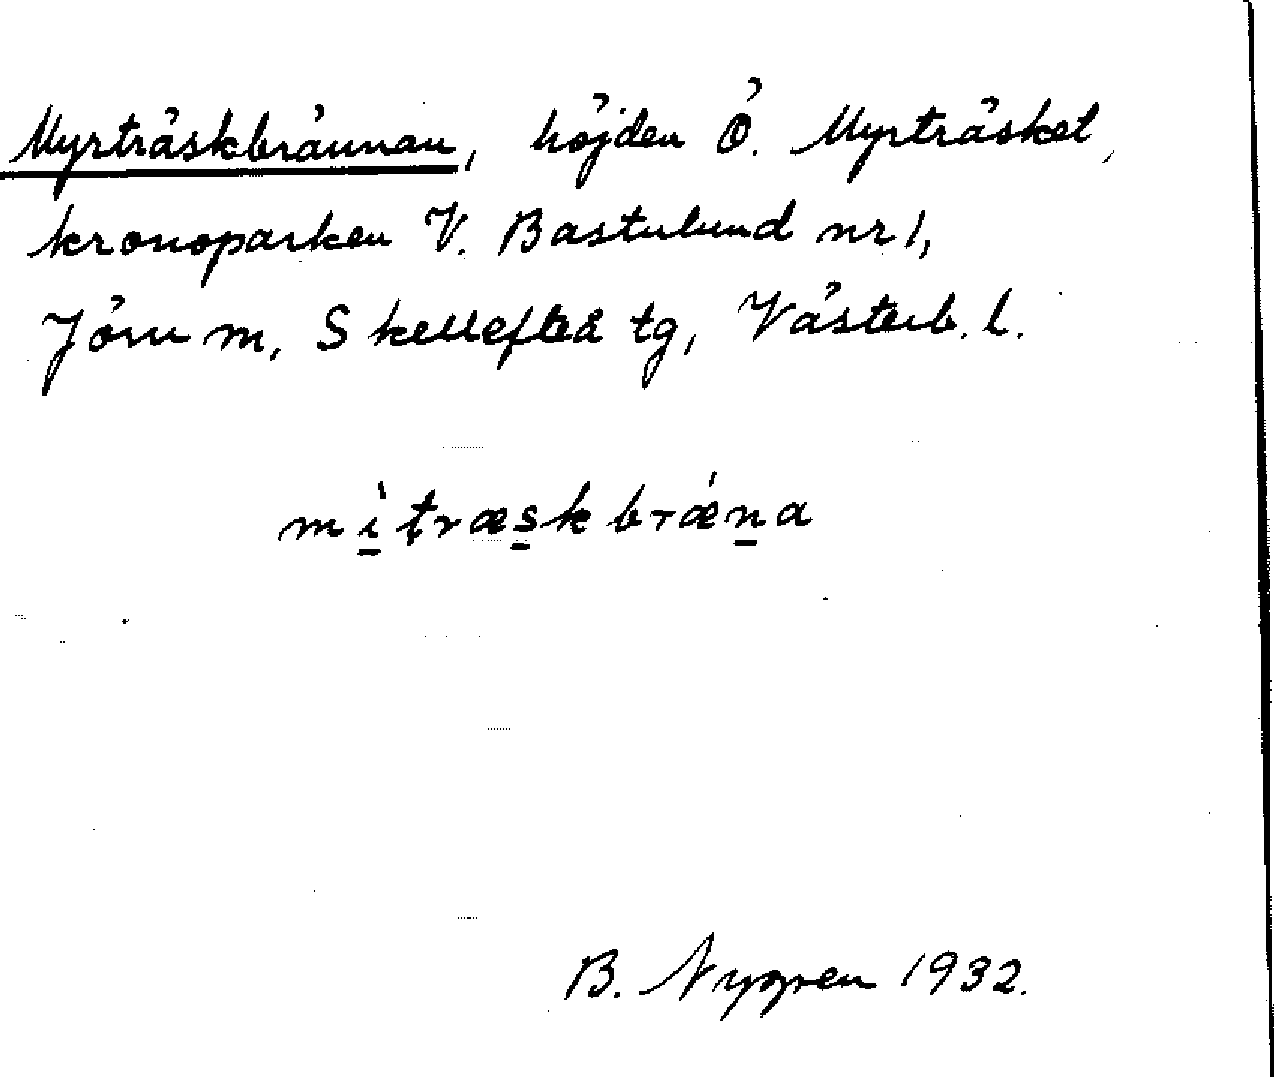 Myrträskbrännan, höjden Ö. Myrträsket,
kronoparken V. Bastulund nr 1,
Jörn m, Skellefteå tg, Västerb. l.
mı̱̀træs̱kbrǽṉa
B. Nygren 1932.